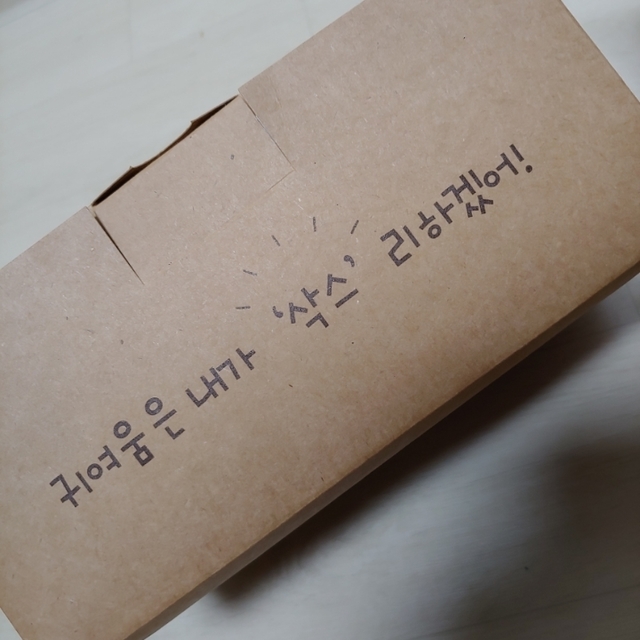 귀여움은 내가 '삭스' 리하겠어!